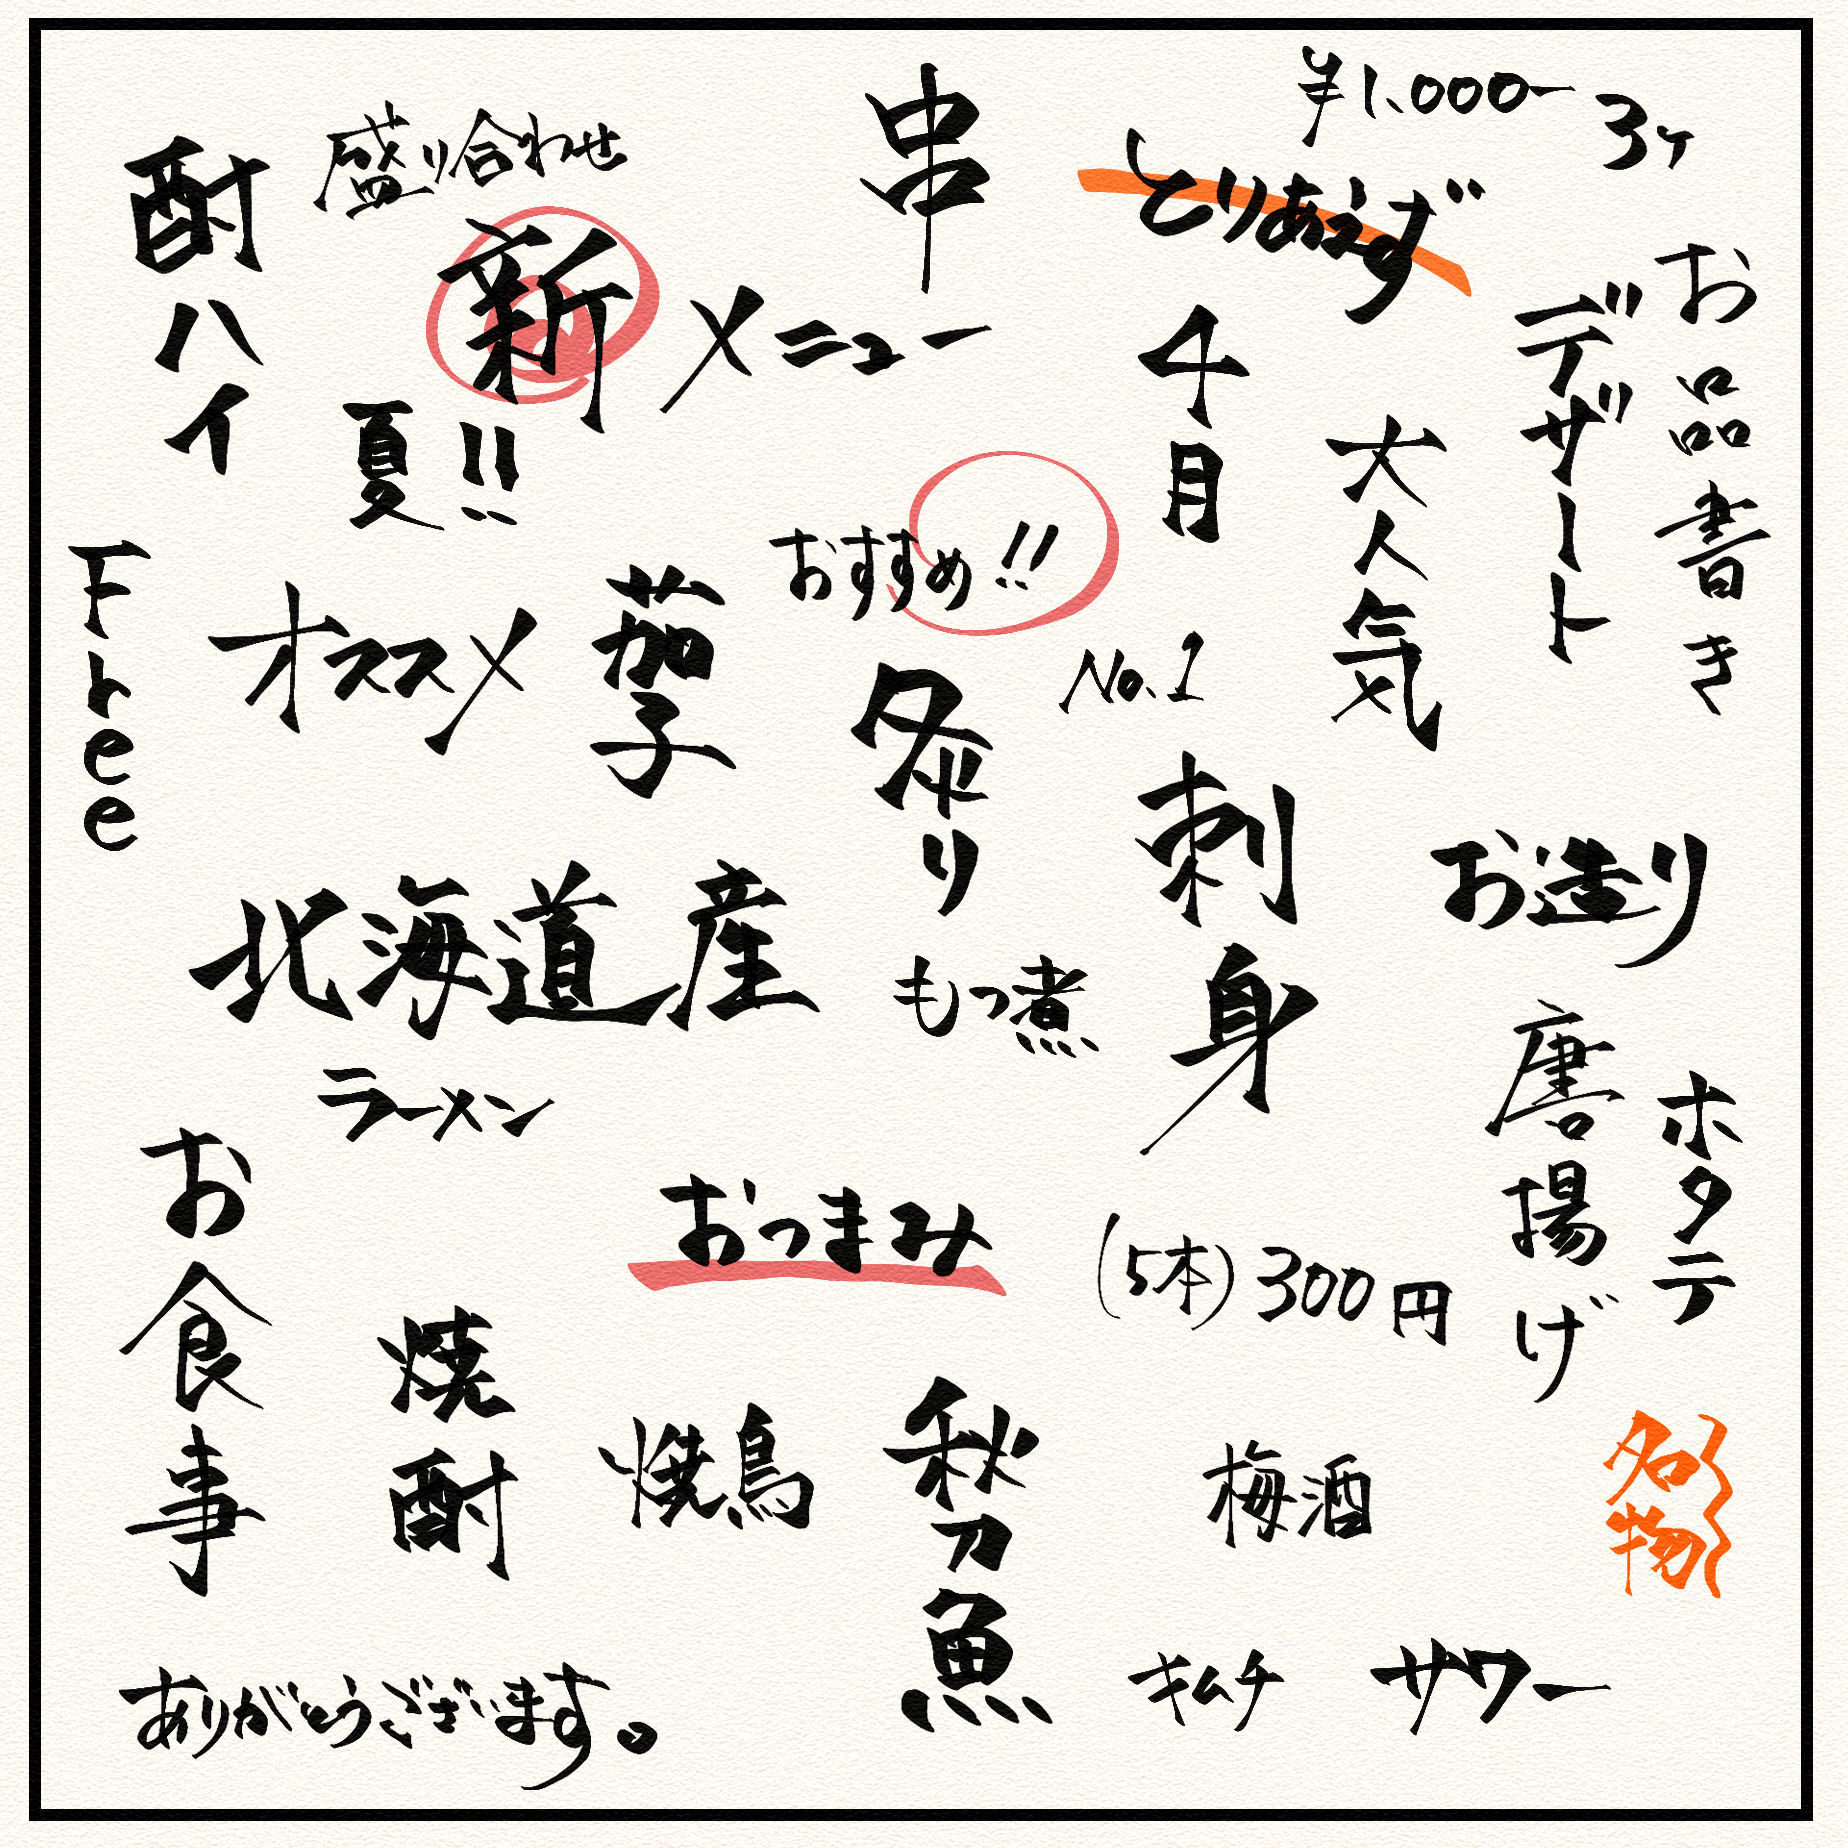 ¥1.000ー
3ヶ
串
盛り合わせ
酎ハイ
とりあえず
新メニュー
お品書き
デザート
4月
夏!!
大人気
おすすめ!!
Free
オススメ
茄子
No.1
炙り
刺身
お造り
北海道産
もつ煮
唐揚げ
ホタテ
ラーメン
お食事
おつまみ
(5本)300円
焼酎
焼鳥
秋刀魚
梅酒
名物
キムチ
サワー
ありがとうございます。